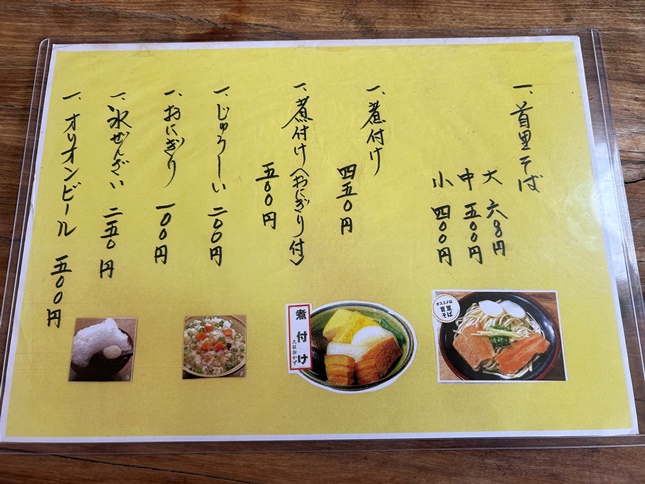 一、首里そば
大 六〇〇円
中 五〇〇円
小 四〇〇円
一、煮付け
四五〇円
一、煮付け(おにぎり付)
五〇〇円
一、じゅうしい 二〇〇円
一、おにぎり 一〇〇円
一、氷ぜんざい 二五〇円
一、オリオンビール 五〇〇円
オススメは
首里
そば
煮付け